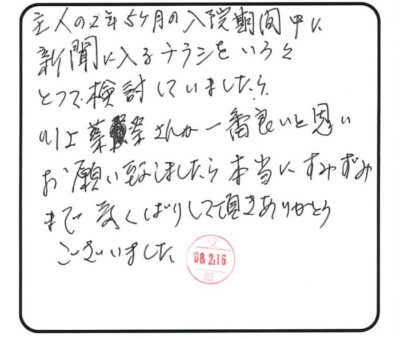 主人の2年5ケ月の入院期間中に
新聞に入るチラシをいろいろ
とって検討していましたら
川上葬祭さんが一番良いと思い
お願い致しましたら本当にすみずみ
まで気くばりして頂きありがとう
ございました
08.2.16